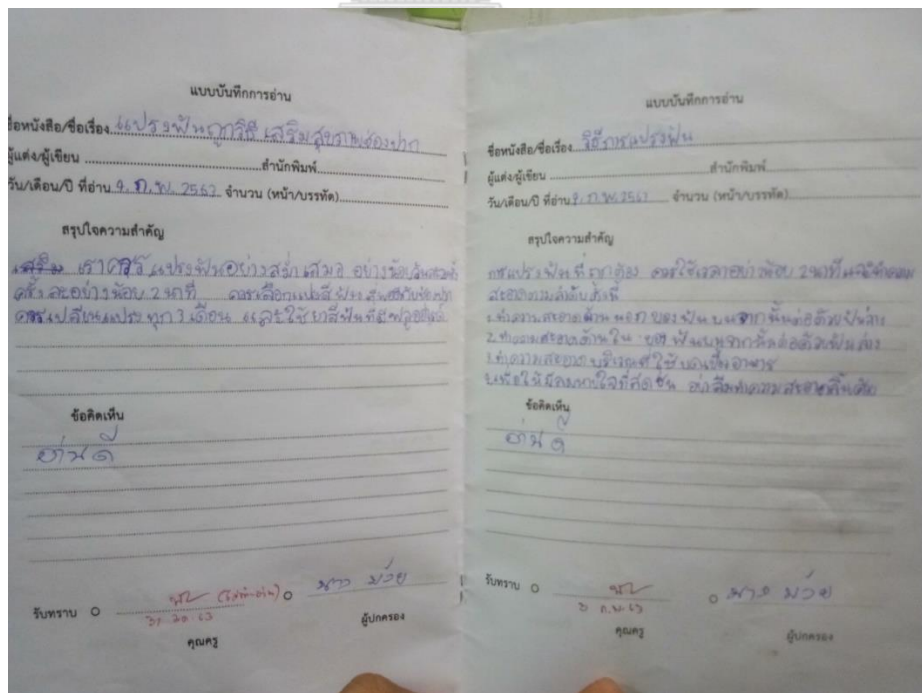 แบบบันทึกการอ่าน
ชื่อหนังสือ/ชื่อเรื่อง แปรงฟันถูกวิธี เสริมสุขภาพช่องปาก
ผู้แต่ง/ผู้เขียน สำนักพิมพ์
วัน/เดือน/ปี ที่อ่าน 9. ก.พ. 2563 จำนวน (หน้า/บรรทัด)
สรุปใจความสำคัญ
เราควรแปรงฟันอย่างสม่ำเสมอ อย่างน้อยวันละ
ครั้ง ละอย่างน้อย 2 นาที ควรเลือกแปรงสีฟัน
ควรเปลี่ยนแปรงทุก 3 เดือน และใช้ยาสีฟันที่
ข้อคิดเห็น
อ่านดี
รับทราบ
คุณครู
ผู้ปกครอง
แบบบันทึกการอ่าน
ชื่อหนังสือ/ชื่อเรื่อง วิธีการแปรงฟัน
ผู้แต่ง/ผู้เขียน สำนักพิมพ์
วัน/เดือน/ปี ที่อ่าน 9. ก.พ. 2563 จำนวน (หน้า/บรรทัด)
สรุปใจความสำคัญ
การแปรงฟันที่ถูกต้อง ควรใช้เวลาอย่างน้อย 2 นาที
สะอาดตามลำดับดังนี้
1. ทำความสะอาดด้านนอกของฟันบนจากนั้นต่อด้วยฟันล่าง
2. ทำความสะอาดด้านใน ของฟันบนจากนั้นต่อด้วยฟันล่าง
3. ทำความสะอาดบริเวณที่ใช้บดเคี้ยวอาหาร
เพื่อให้มีลมหายใจที่สดชื่น อย่าลืมทำความสะอาดลิ้นด้วย
ข้อคิดเห็น
อ่านดี
รับทราบ
ก.พ. 63
คุณครู
ผู้ปกครอง